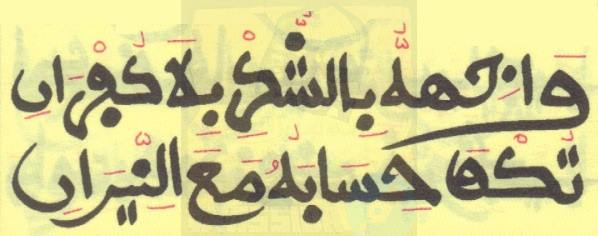 وَاجِهْهُ بِالشُّكْرِ بِلَا كُفْرَانِ
تُكْفَ حِسَابَهُ مَعَ النِّيرَانِ